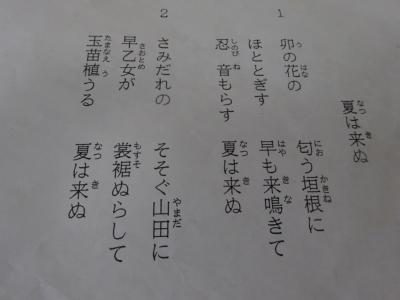 夏は来ぬ
1
卯の花の 匂う垣根に
ほととぎす 早も来鳴きて
忍音もらす 夏は来ぬ
2
さみだれの そそぐ山田に
早乙女が 裳裾ぬらして
玉苗植うる 夏は来ぬ